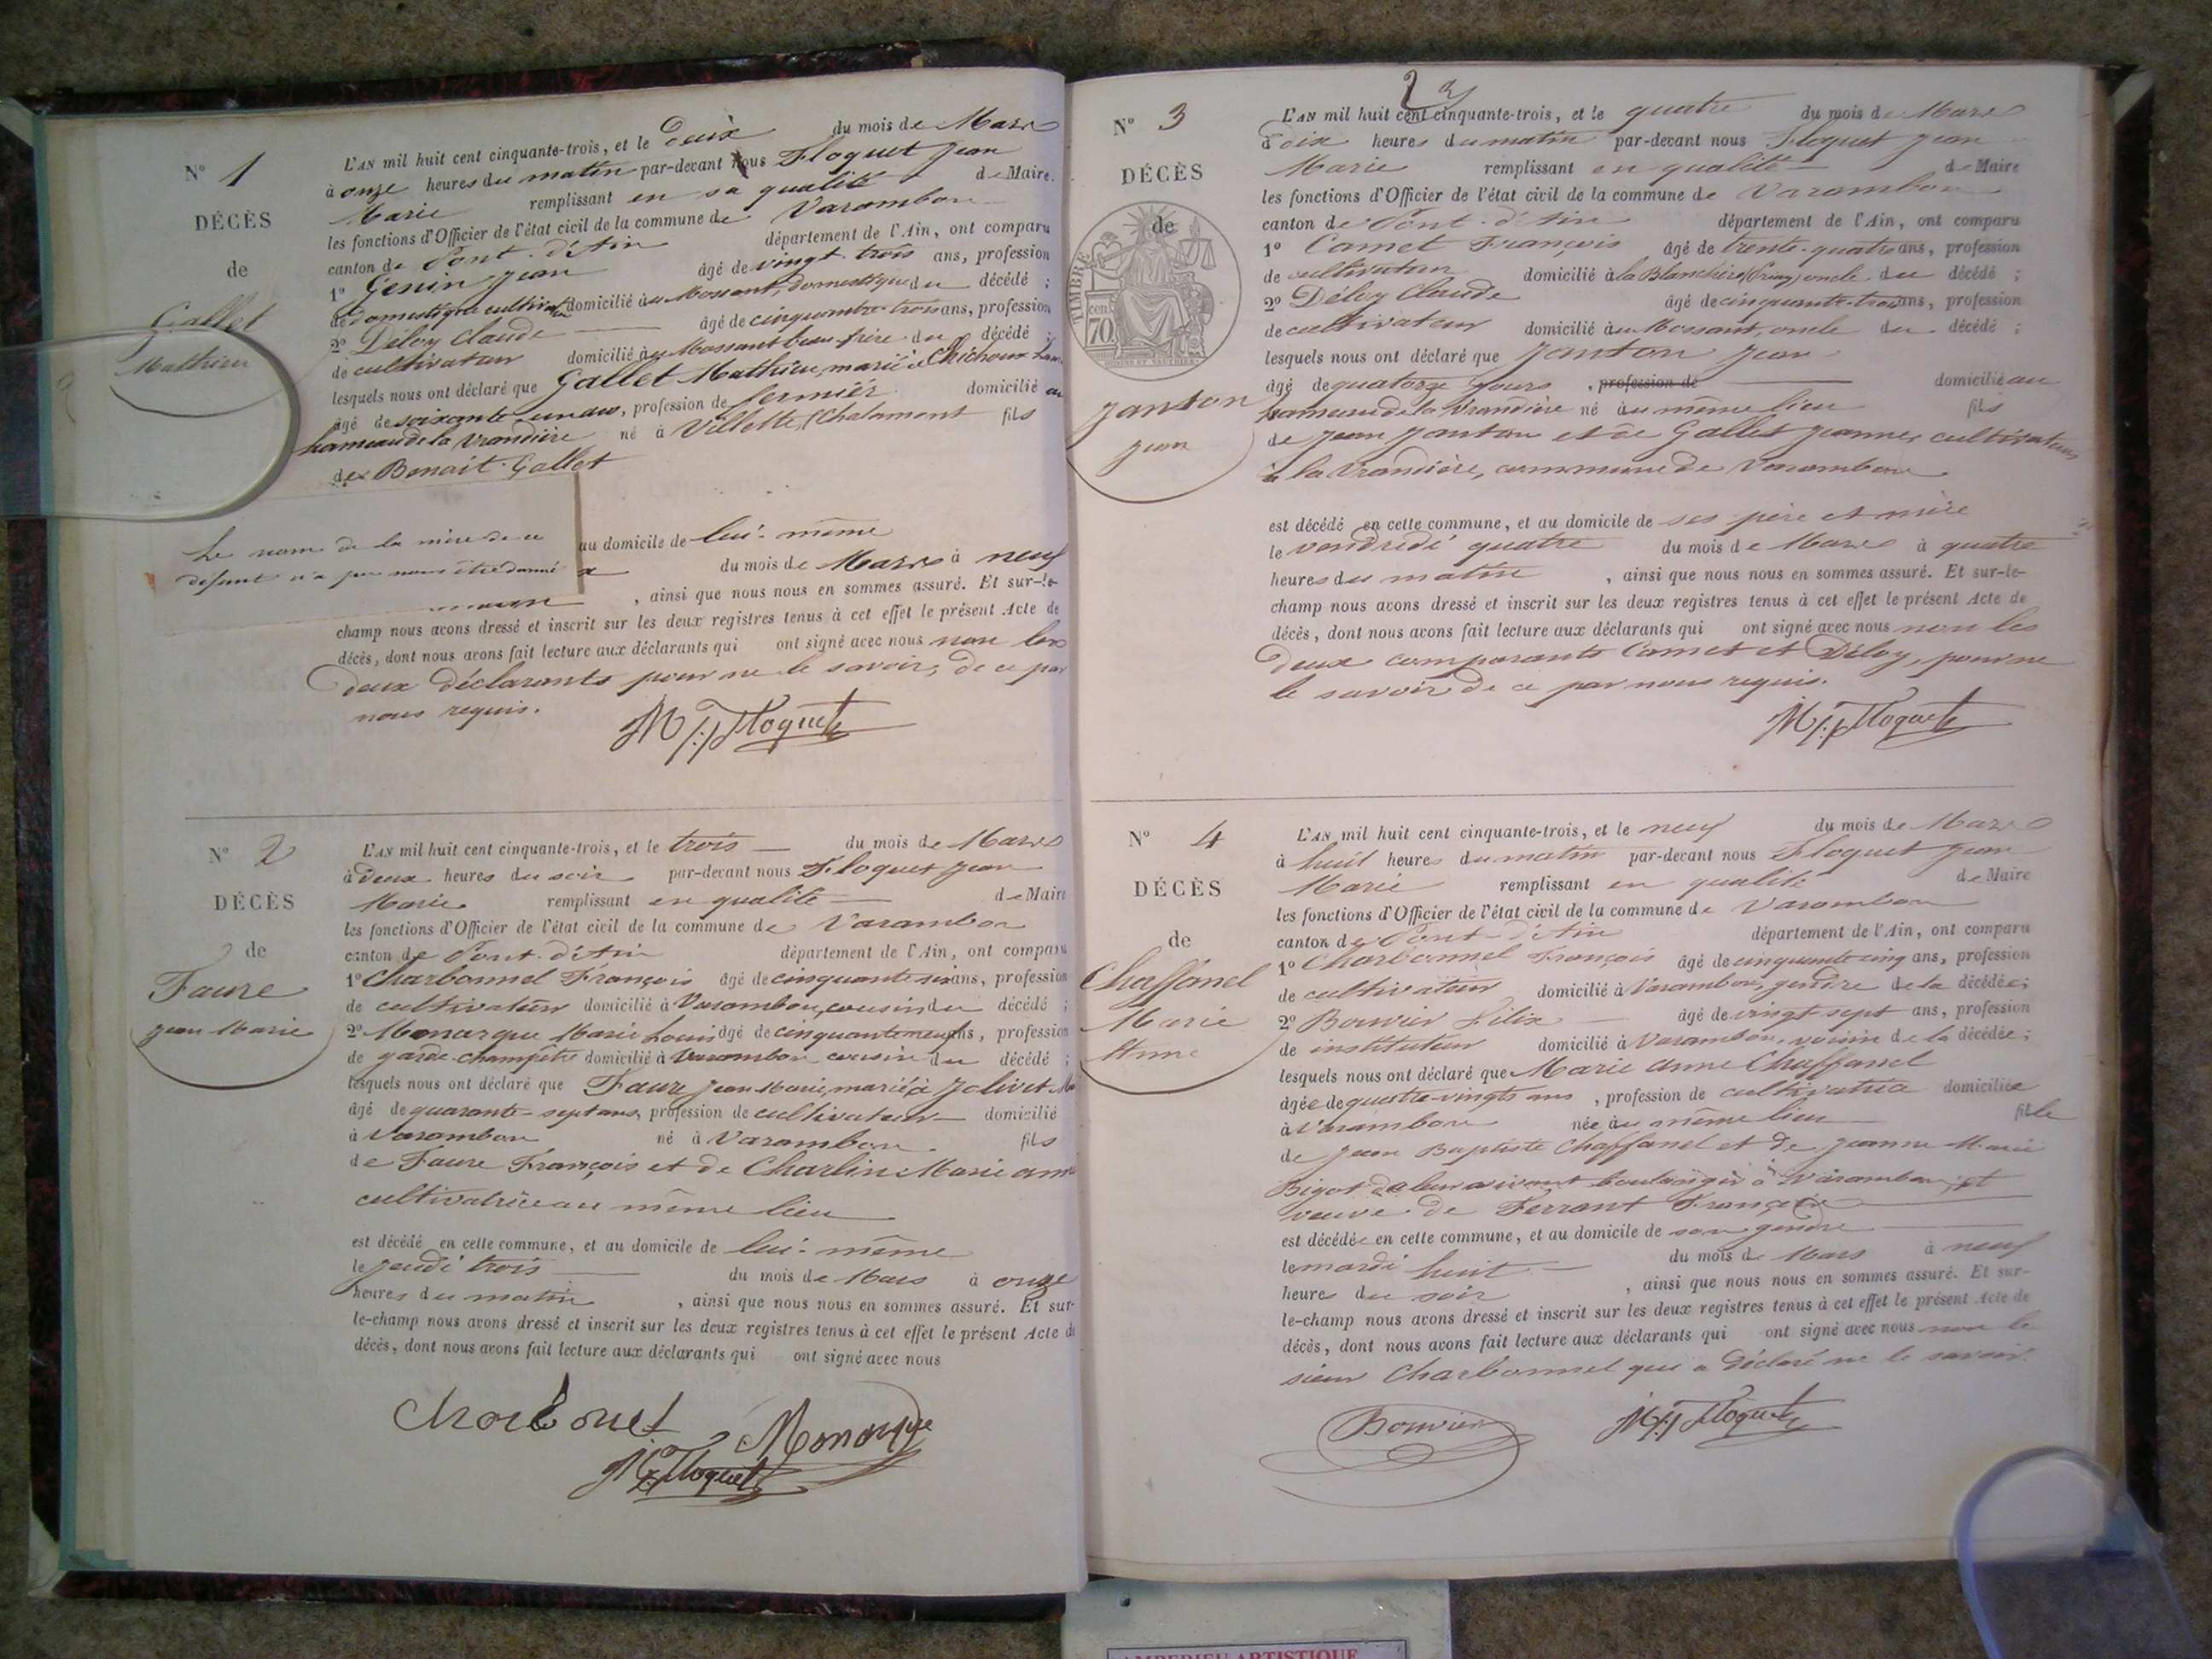 N° 1
DÉCÈS
de
Gallet
Mathieu
L'AN mil huit cent cinquante-trois, et le deux du mois de Mars
à onze heures du matin par-devant nous Floquet Jean
Marie remplissant en sa qualité de Maire.
les fonctions d'Officier de l'état civil de la commune de Varambon
canton de Pont-d'Ain département de l'Ain, ont comparu
1° Genin Jean âgé de vingt trois ans, profession
de domestique cultivateur domicilié au Mossant, domestique du décédé ;
2° Déloy Claude âgé de cinquante-trois ans, profession
de cultivateur domicilié au Mossant beau-frère du décédé ;
lesquels nous ont déclaré que Gallet Mathieu, marié à Chichoux
âgé de soixante-un ans, profession de fermier domicilié au
hameau de la Vrandière né à Villette, (Chalamont fils
de Benoit Gallet
Le nom de la mère de ce
défunt n'a pu nous être donné
au domicile de lui-même
du mois de Mars à neuf
, ainsi que nous nous en sommes assuré. Et sur-le-
champ nous avons dressé et inscrit sur les deux registres tenus à cet effet le présent Acte de
décès, dont nous avons fait lecture aux déclarants qui ont signé avec nous non les
deux déclarants pour ne le savoir, de ce par
nous requis.
M J Floquet
N° 2
DÉCÈS
de
Faure
Jean Marie
L'AN mil huit cent cinquante-trois, et le trois du mois de Mars
à deux heures du soir par-devant nous Floquet Jean
Marie remplissant en qualité de Maire
les fonctions d'Officier de l'état civil de la commune de Varambon
canton de Pont-d'Ain département de l'Ain, ont comparu
1° Charbonnel François âgé de cinquante-six ans, profession
de cultivateur domicilié à Varambon, cousin du décédé ;
2° Monarque Marie Louis âgé de cinquante neuf ans, profession
de garde-champêtre domicilié à Varambon cousin du décédé ;
lesquels nous ont déclaré que Faure Jean Marie, marié à Jolivet
âgé de quarante-sept ans, profession de cultivateur domicilié
à Varambon né à Varambon fils
de Faure François et de Charlin Marie anne
cultivatrice au même lieu
est décédé en cette commune, et au domicile de lui-même
le jeudi trois du mois de Mars à onze
heures du matin , ainsi que nous nous en sommes assuré. Et sur-
le-champ nous avons dressé et inscrit sur les deux registres tenus à cet effet le présent Acte de
décès, dont nous avons fait lecture aux déclarants qui ont signé avec nous
Charbonel Monarque
M J Floquet
2
N° 3
DÉCÈS
de
TIMBRE
70 cent
Janton
Jean
L'AN mil huit cent cinquante-trois, et le quatre du mois de Mars
à dix heures du matin par-devant nous Floquet Jean
Marie remplissant en qualité de Maire
les fonctions d'Officier de l'état civil de la commune de Varambon
canton de Pont-d'Ain département de l'Ain, ont comparu
1° Camet François âgé de trente-quatre ans, profession
de cultivateur domicilié à la Blanchère oncle du décédé ;
2° Déloy Claude âgé de cinquante-trois ans, profession
de cultivateur domicilié au Mossant, oncle du décédé ;
lesquels nous ont déclaré que Janton Jean
âgé de quatorze jours , profession de domicilié au
hameau de la Vrandière né au même lieu fils
de Jean Janton et de Gallet Jeanne, cultivateurs
à la Vrandière, commune de Varambon
est décédé en cette commune, et au domicile de ses père et mère
le vendredi quatre du mois de Mars à quatre
heures du matin , ainsi que nous nous en sommes assuré. Et sur-le-
champ nous avons dressé et inscrit sur les deux registres tenus à cet effet le présent Acte de
décès, dont nous avons fait lecture aux déclarants qui ont signé avec nous non les
deux comparants Camet et Déloy, pour ne
le savoir de ce par nous requis.
M J Floquet
N° 4
DÉCÈS
de
Chaffanel
Marie
Anne
L'AN mil huit cent cinquante-trois, et le neuf du mois de Mars
à huit heures du matin par-devant nous Floquet Jean
Marie remplissant en qualité de Maire
les fonctions d'Officier de l'état civil de la commune de Varambon
canton de Pont-d'Ain département de l'Ain, ont comparu
1° Charbonnel François âgé de cinquante-cinq ans, profession
de cultivateur domicilié à Varambon, gendre de la décédée ;
2° Bouvier Félix âgé de vingt sept ans, profession
de instituteur domicilié à Varambon, voisin de la décédée ;
lesquels nous ont déclaré que Marie anne Chaffanel
âgée de quatre-vingts ans , profession de cultivatrice domiciliée
à Varambon née au même lieu fille
de Jean Baptiste Chaffanel et de Jeanne Marie
Bigot de leur vivant boulanger à Varambon, et
veuve de Ferrant François
est décédée en cette commune, et au domicile de son gendre
le mardi huit du mois de Mars à neuf
heures du soir , ainsi que nous nous en sommes assuré. Et sur-
le-champ nous avons dressé et inscrit sur les deux registres tenus à cet effet le présent Acte de
décès, dont nous avons fait lecture aux déclarants qui ont signé avec nous non le
sieur Charbonnel qui a déclaré ne le savoir.
Bouvier M J Floquet
AMBERIEU ARTISTIQUE